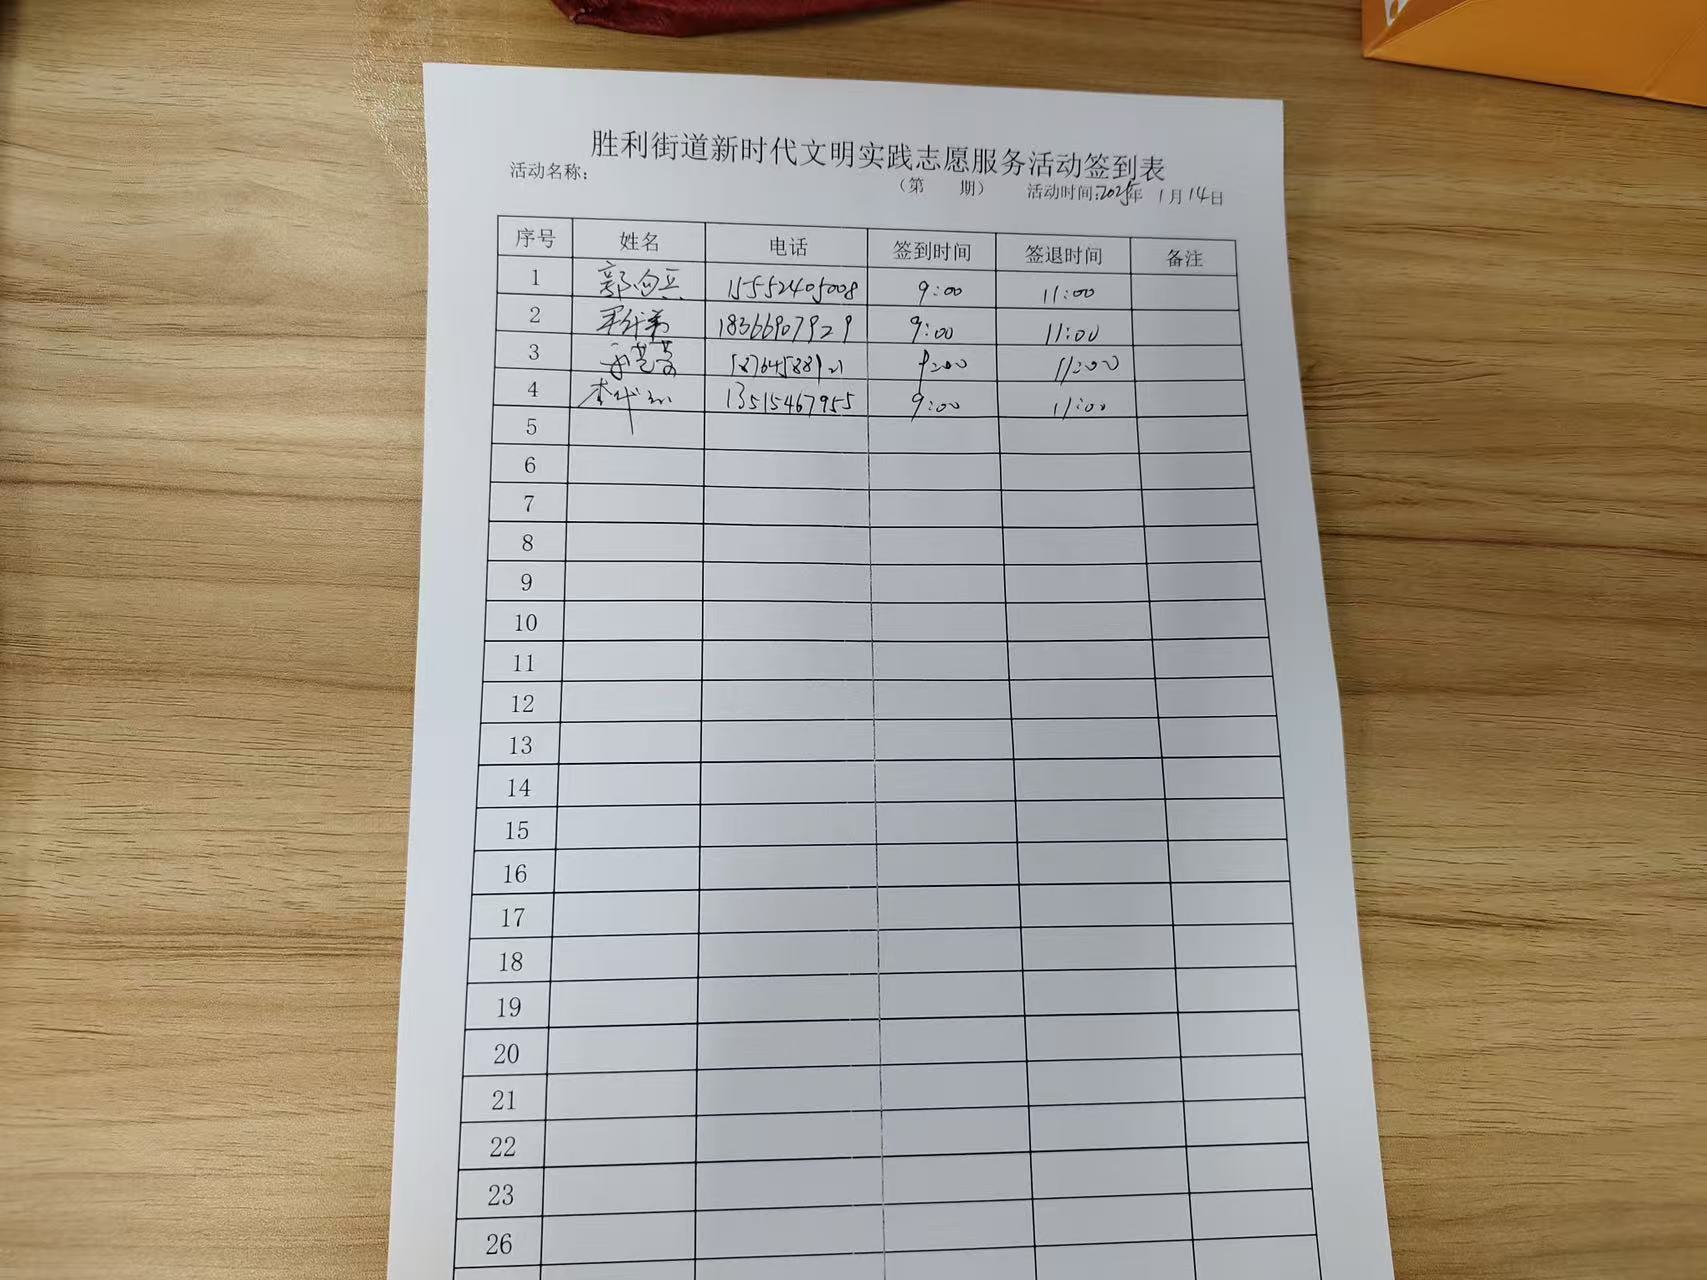 胜利街道新时代文明实践志愿服务活动签到表
活动名称： （第 期） 活动时间:2025年 1月14日
序号 姓名 电话 签到时间 签退时间 备注
1 15552405008 9:00 11:00
2 18366907929 9:00 11:00
3 9:00 11:00
4 13515467955 9:00 11:00
5
6
7
8
9
10
11
12
13
14
15
16
17
18
19
20
21
22
23
26